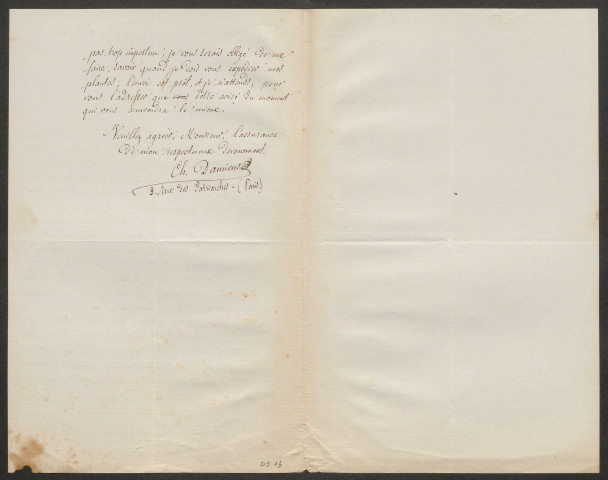 pas trop importun, je vous serais obligé de me
faire savoir quand je dois vous expédier mes
plantes, l'envoi est prêt, et je n'attends, pour
vous l'adresser que vous être avisé du moment
qui vous conviendra le mieux.
Veuillez agréer, Monsieur, l'assurance
de mon respectueux dévouement.
Ch. Damiens
3. Rue des Patriarches - (Paris)